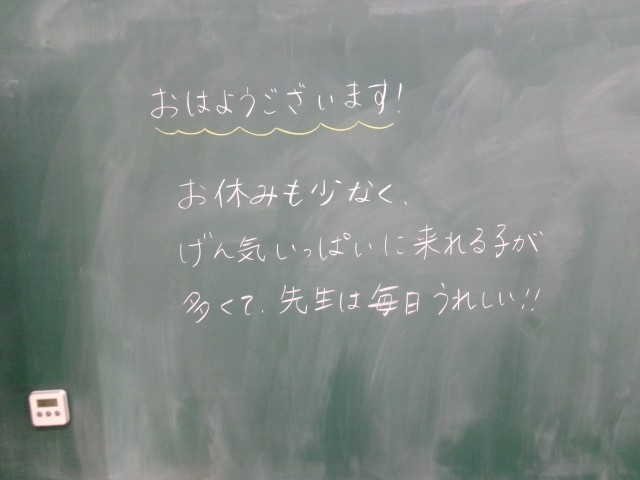 おはようございます!
お休みも少なく、
げん気いっぱいに来れる子が
多くて、先生は毎日うれしい!!